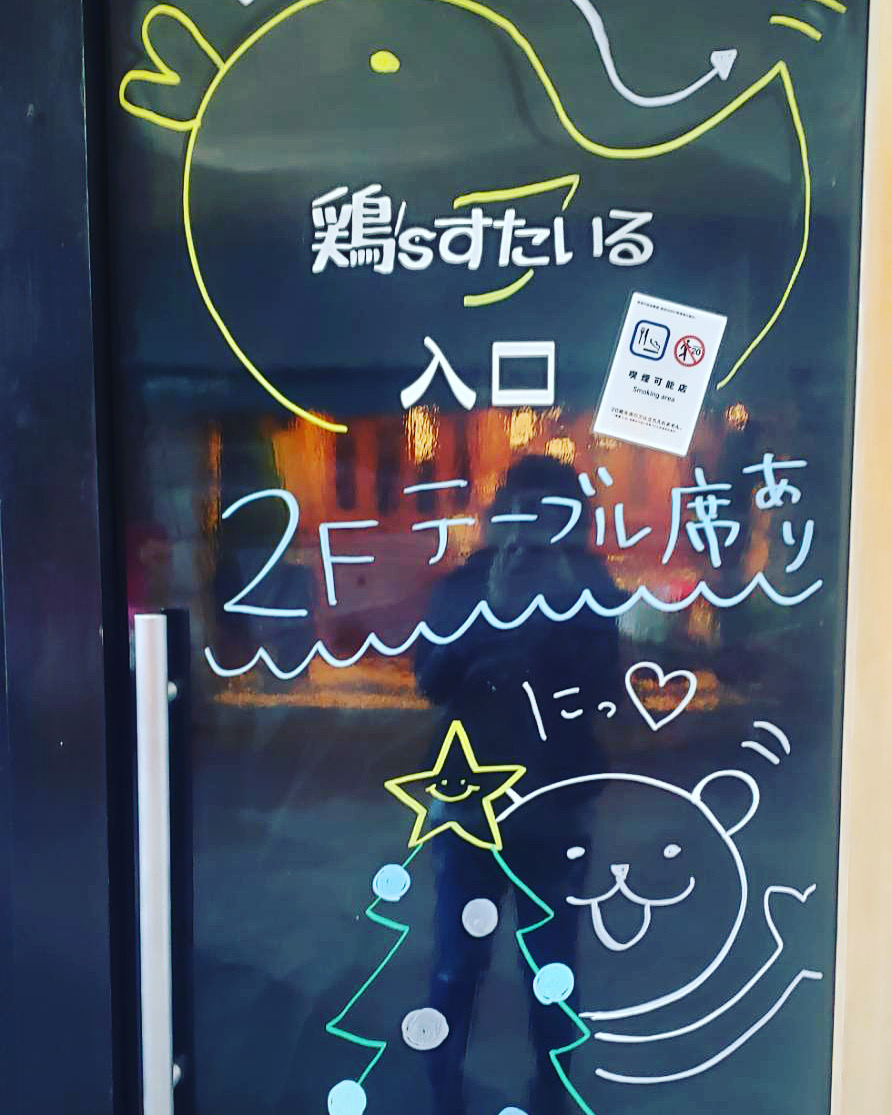 鶏'sすたいる
入口
喫煙可能店
Smoking area
2F テーブル席あり
にっ♡